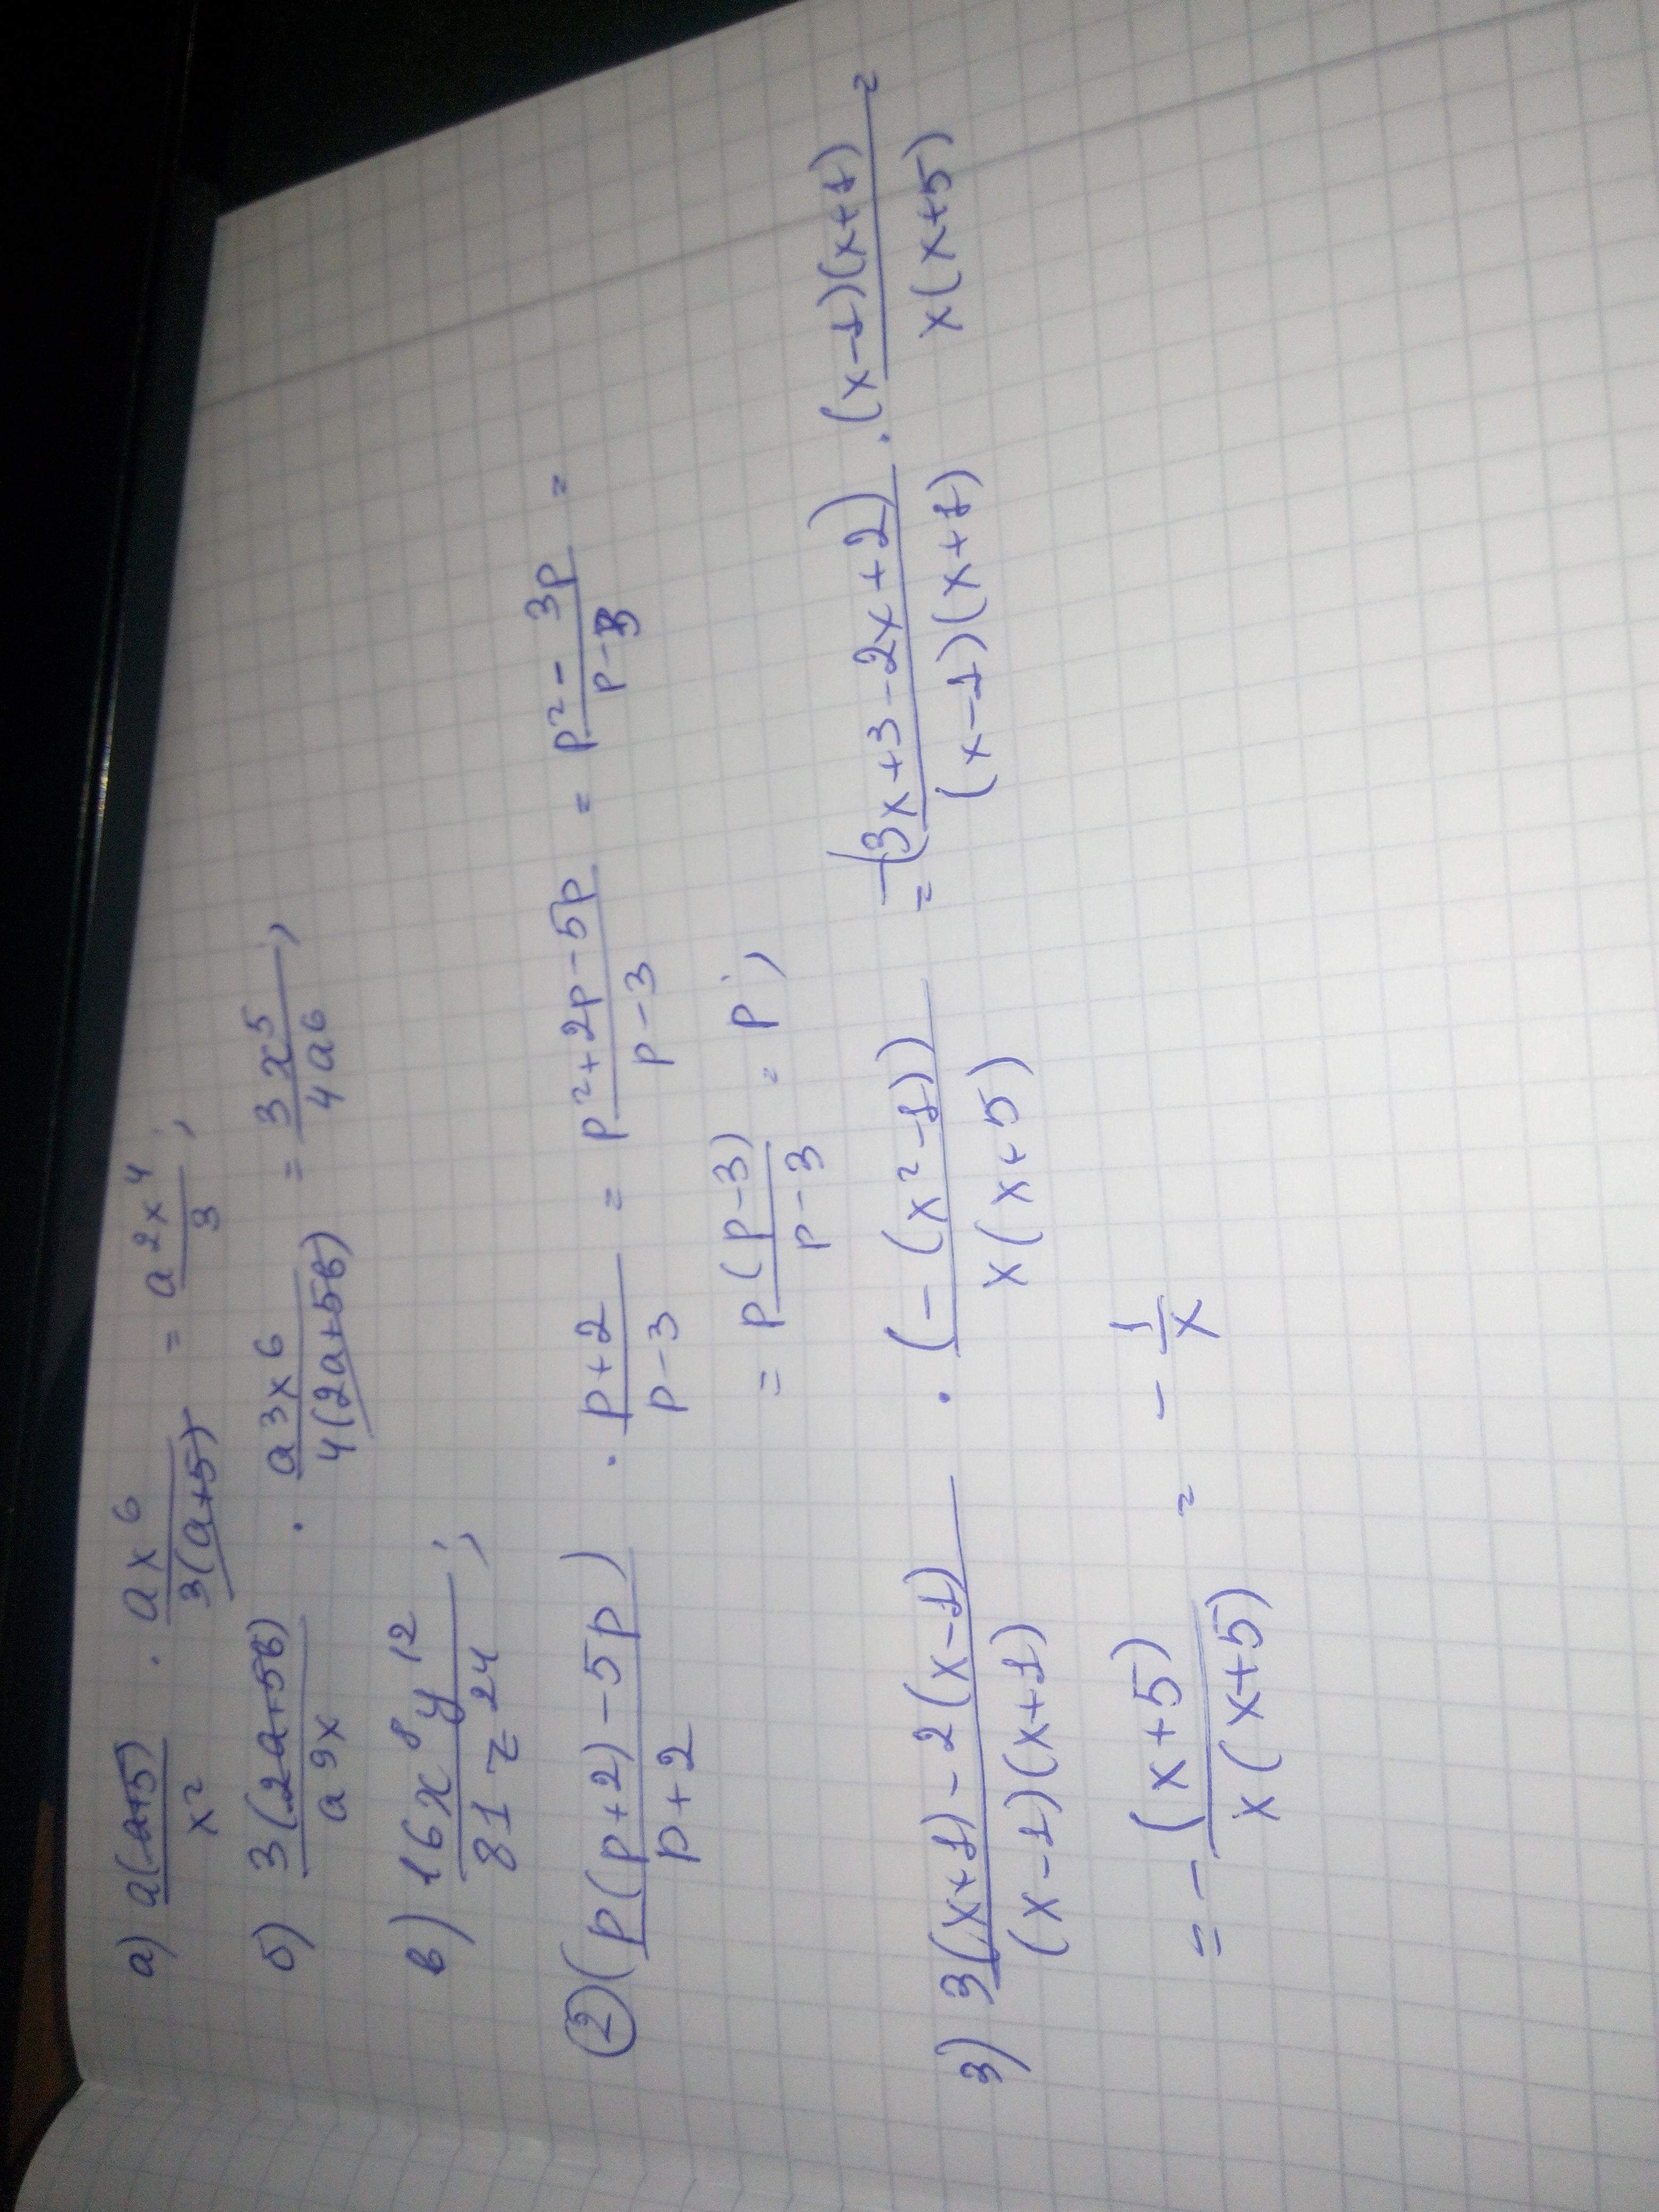 а) a(a+5)/x² · ax⁶/3(a+5) = a²x⁴/3 ;
б) 3(2a+5b)/a⁹x · a³x⁶/4(2a+5b) = 3x⁵/4a⁶ ;
в) 16x⁸y¹²/81z²⁴ ;
② (p(p+2)-5p)/p+2 · p+2/p-3 = p²+2p-5p/p-3 = p²-3p/p-3 =
= p(p-3)/p-3 = p ;
3) 3(x+1)-2(x-1)/(x-1)(x+1) · (-(x²-1))/x(x+5) = -(3x+3-2x+2)/(x-1)(x+1) · (x-1)(x+1)/x(x+5) =
= - (x+5)/x(x+5) = - 1/x